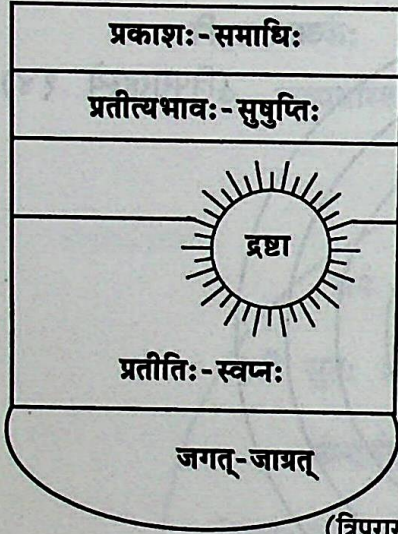 प्रकाशः-समाधिः
प्रतीत्यभावः-सुषुप्तिः
द्रष्टा
प्रतीतिः-स्वप्नः
जगत्-जाग्रत्